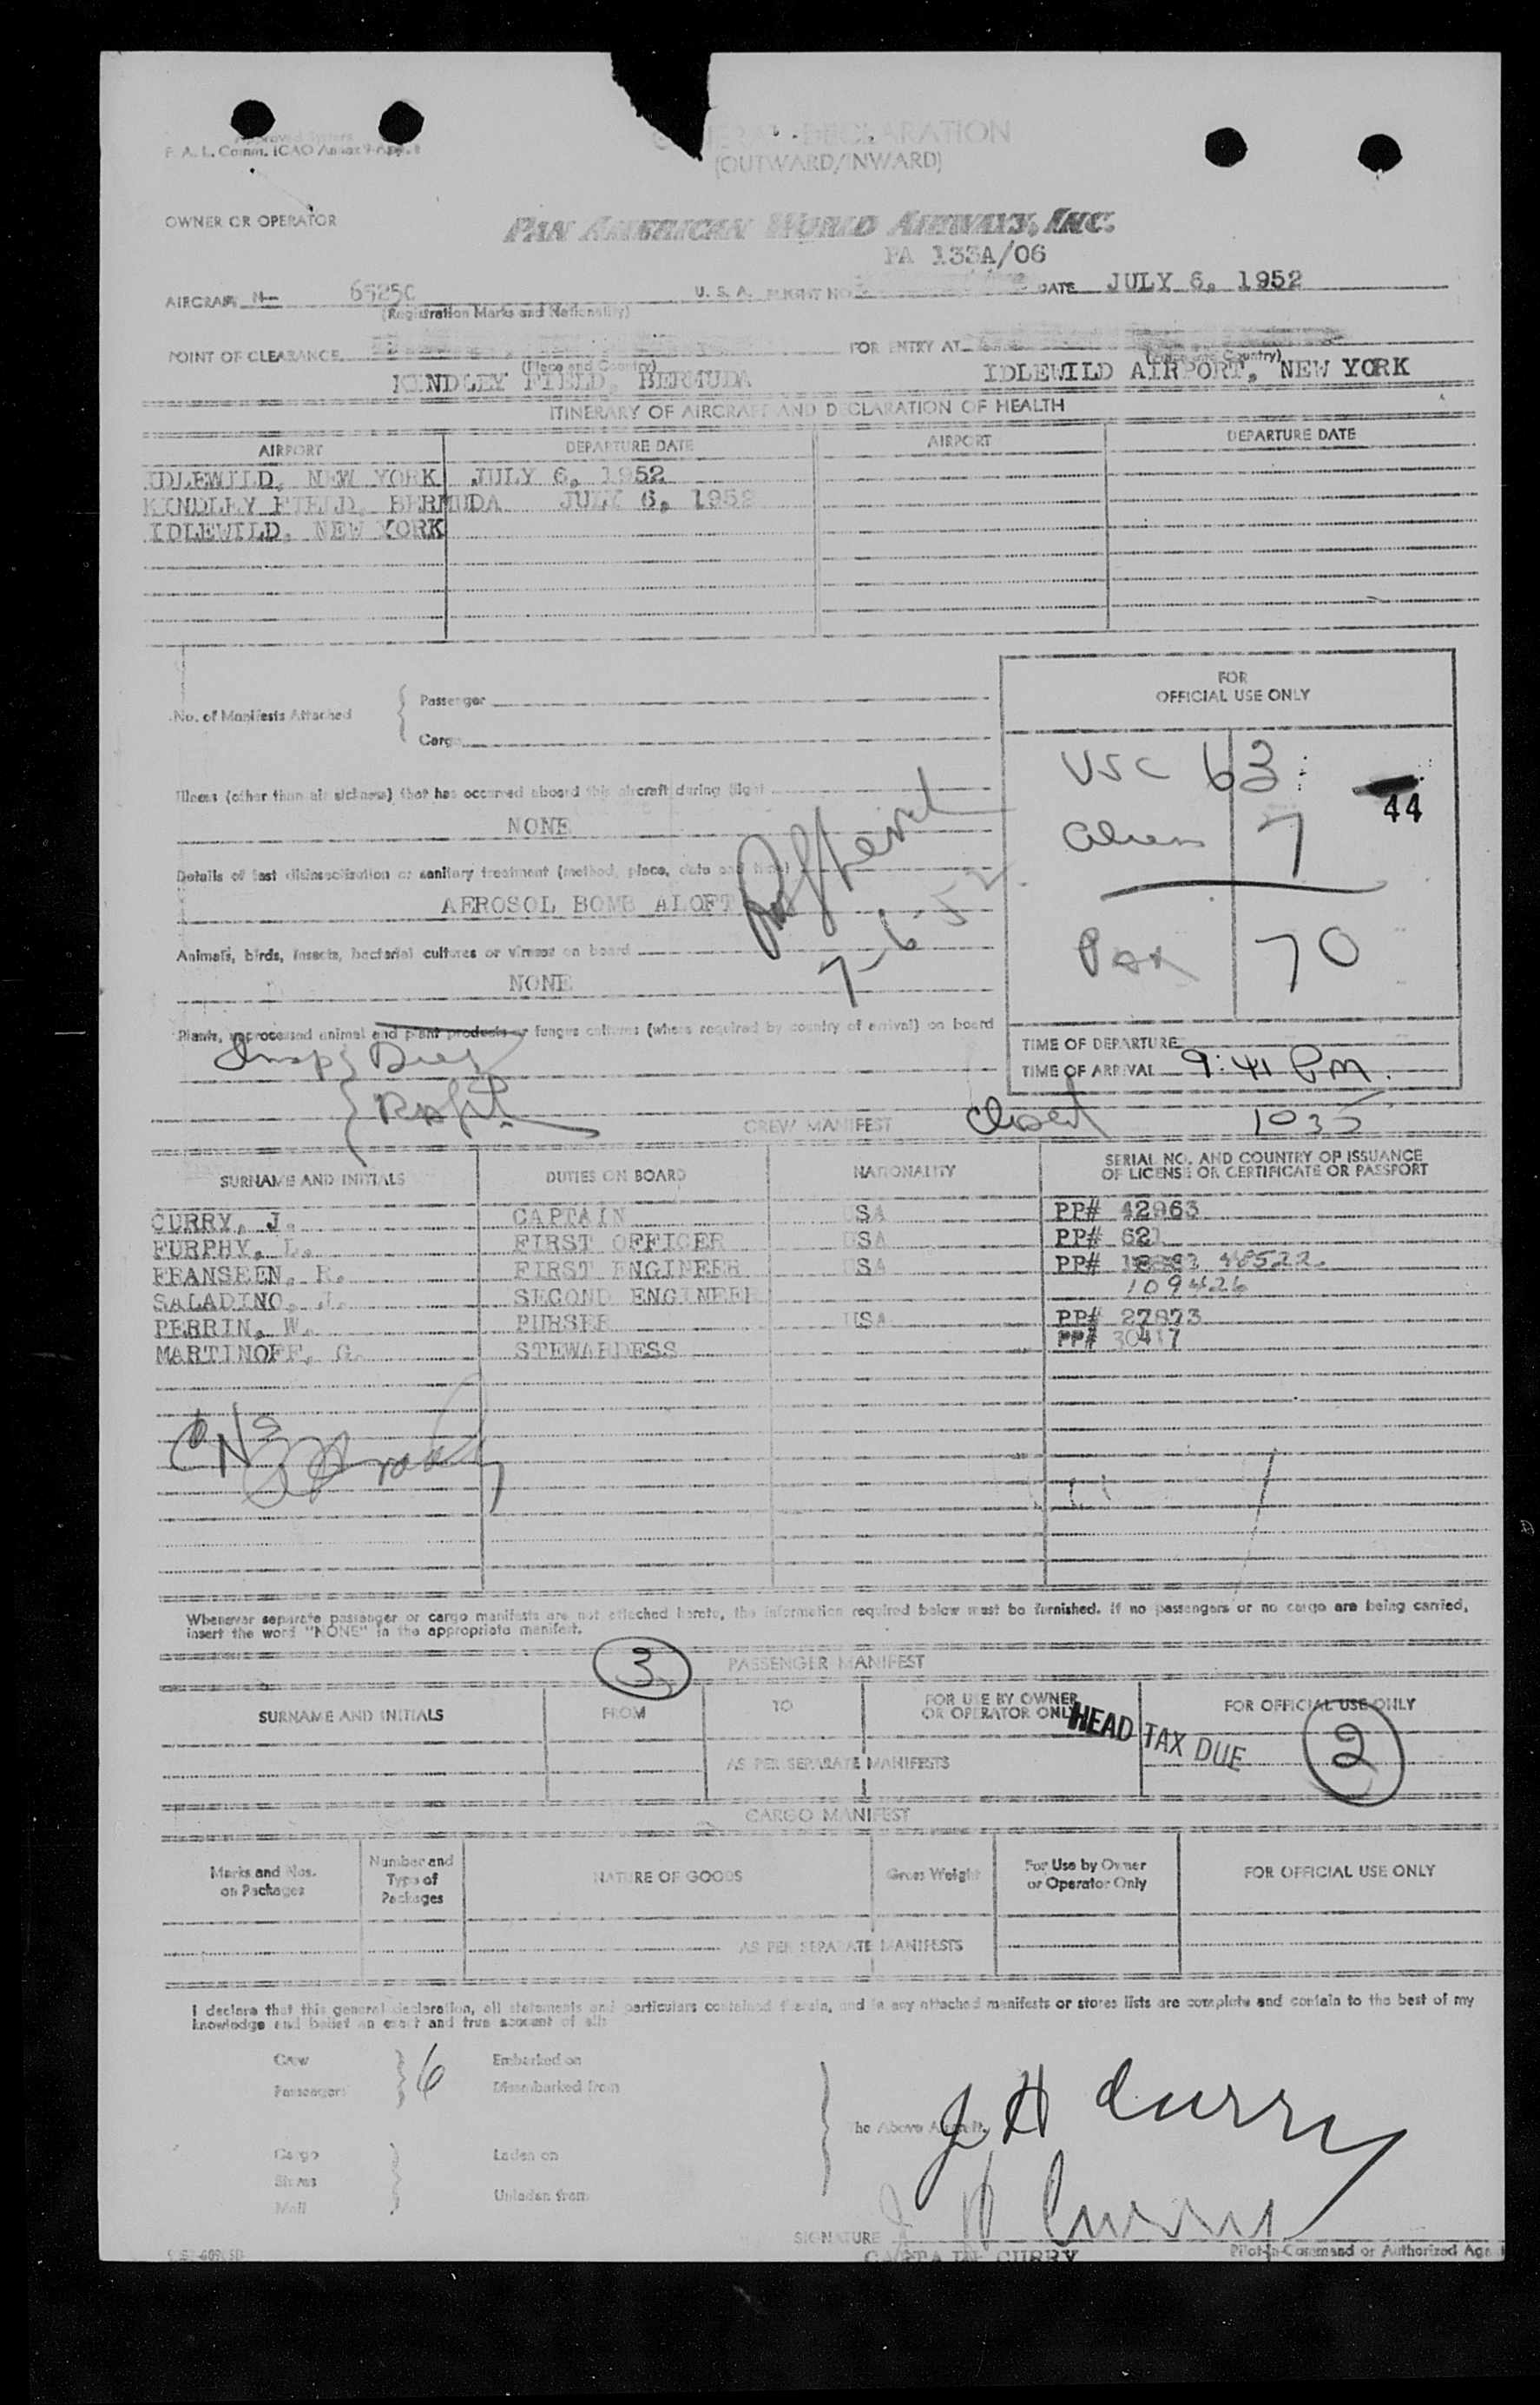 Approved System
F. A. L. Comm. ICAO Annex 9-App. 1
GENERAL DECLARATION
(OUTWARD/INWARD)
OWNER OR OPERATOR
PAN AMERICAN WORLD AIRWAYS, INC.
PA 133A/06
AIRCRAFT N- 6525C U. S. A. FLIGHT NO. DATE JULY 6, 1952
(Registration Marks and Nationality)
POINT OF CLEARANCE FOR ENTRY AT
(Place and Country) (Place and Country)
KINDLEY FIELD, BERMUDA IDLEWILD AIRPORT, NEW YORK
ITINERARY OF AIRCRAFT AND DECLARATION OF HEALTH
AIRPORT DEPARTURE DATE AIRPORT DEPARTURE DATE
IDLEWILD, NEW YORK JULY 6, 1952
KINDLEY FIELD, BERMUDA JULY 6, 1952
IDLEWILD, NEW YORK
No. of Manifests Attached
Passenger
Cargo
FOR
OFFICIAL USE ONLY
USC 63
44
Aliens 7
Pax 70
Illness (other than air sickness) that has occurred aboard this aircraft during flight
NONE
Details of last disinsectization or sanitary treatment (method, place, date and time)
AEROSOL BOMB ALOFT
7-6-52
Animals, birds, insects, bacterial cultures or viruses on board
NONE
Plants, unprocessed animal and plant products or fungus cultures (where required by country of arrival) on board
TIME OF DEPARTURE
TIME OF ARRIVAL 9:41 Pm.
Closed 1035
CREW MANIFEST
SURNAME AND INITIALS DUTIES ON BOARD NATIONALITY SERIAL NO. AND COUNTRY OF ISSUANCE
OF LICENSE OR CERTIFICATE OR PASSPORT
CURRY, J. CAPTAIN USA PP# 42963
FURPHY, L. FIRST OFFICER USA PP# 621
FRANSEEN, R. FIRST ENGINEER USA PP# 48522
SALADINO, J. SECOND ENGINEER 109426
PERRIN, W. PURSER USA PP# 27873
MARTINOFF, G. STEWARDESS PP# 30417
Whenever separate passenger or cargo manifests are not attached hereto, the information required below must be furnished. If no passengers or no cargo are being carried,
insert the word "NONE" in the appropriate manifest.
3
PASSENGER MANIFEST
SURNAME AND INITIALS FROM TO FOR USE BY OWNER
OR OPERATOR ONLY FOR OFFICIAL USE ONLY
HEAD TAX DUE 2
AS PER SEPARATE MANIFESTS
CARGO MANIFEST
Marks and Nos.
on Packages Number and
Type of
Packages NATURE OF GOODS Gross Weight For Use by Owner
or Operator Only FOR OFFICIAL USE ONLY
AS PER SEPARATE MANIFESTS
I declare that this general declaration, all statements and particulars contained therein, and in any attached manifests or stores lists are complete and contain to the best of my
knowledge and belief an exact and true account of all:
Crew
Passengers
6
Embarked on
Disembarked from
The Above Aircraft.
J H Curry
Cargo
Stores
Mail
Laden on
Unladen from
J H Curry
SIGNATURE
CAPTAIN CURRY
Pilot-in-Command or Authorized Agent